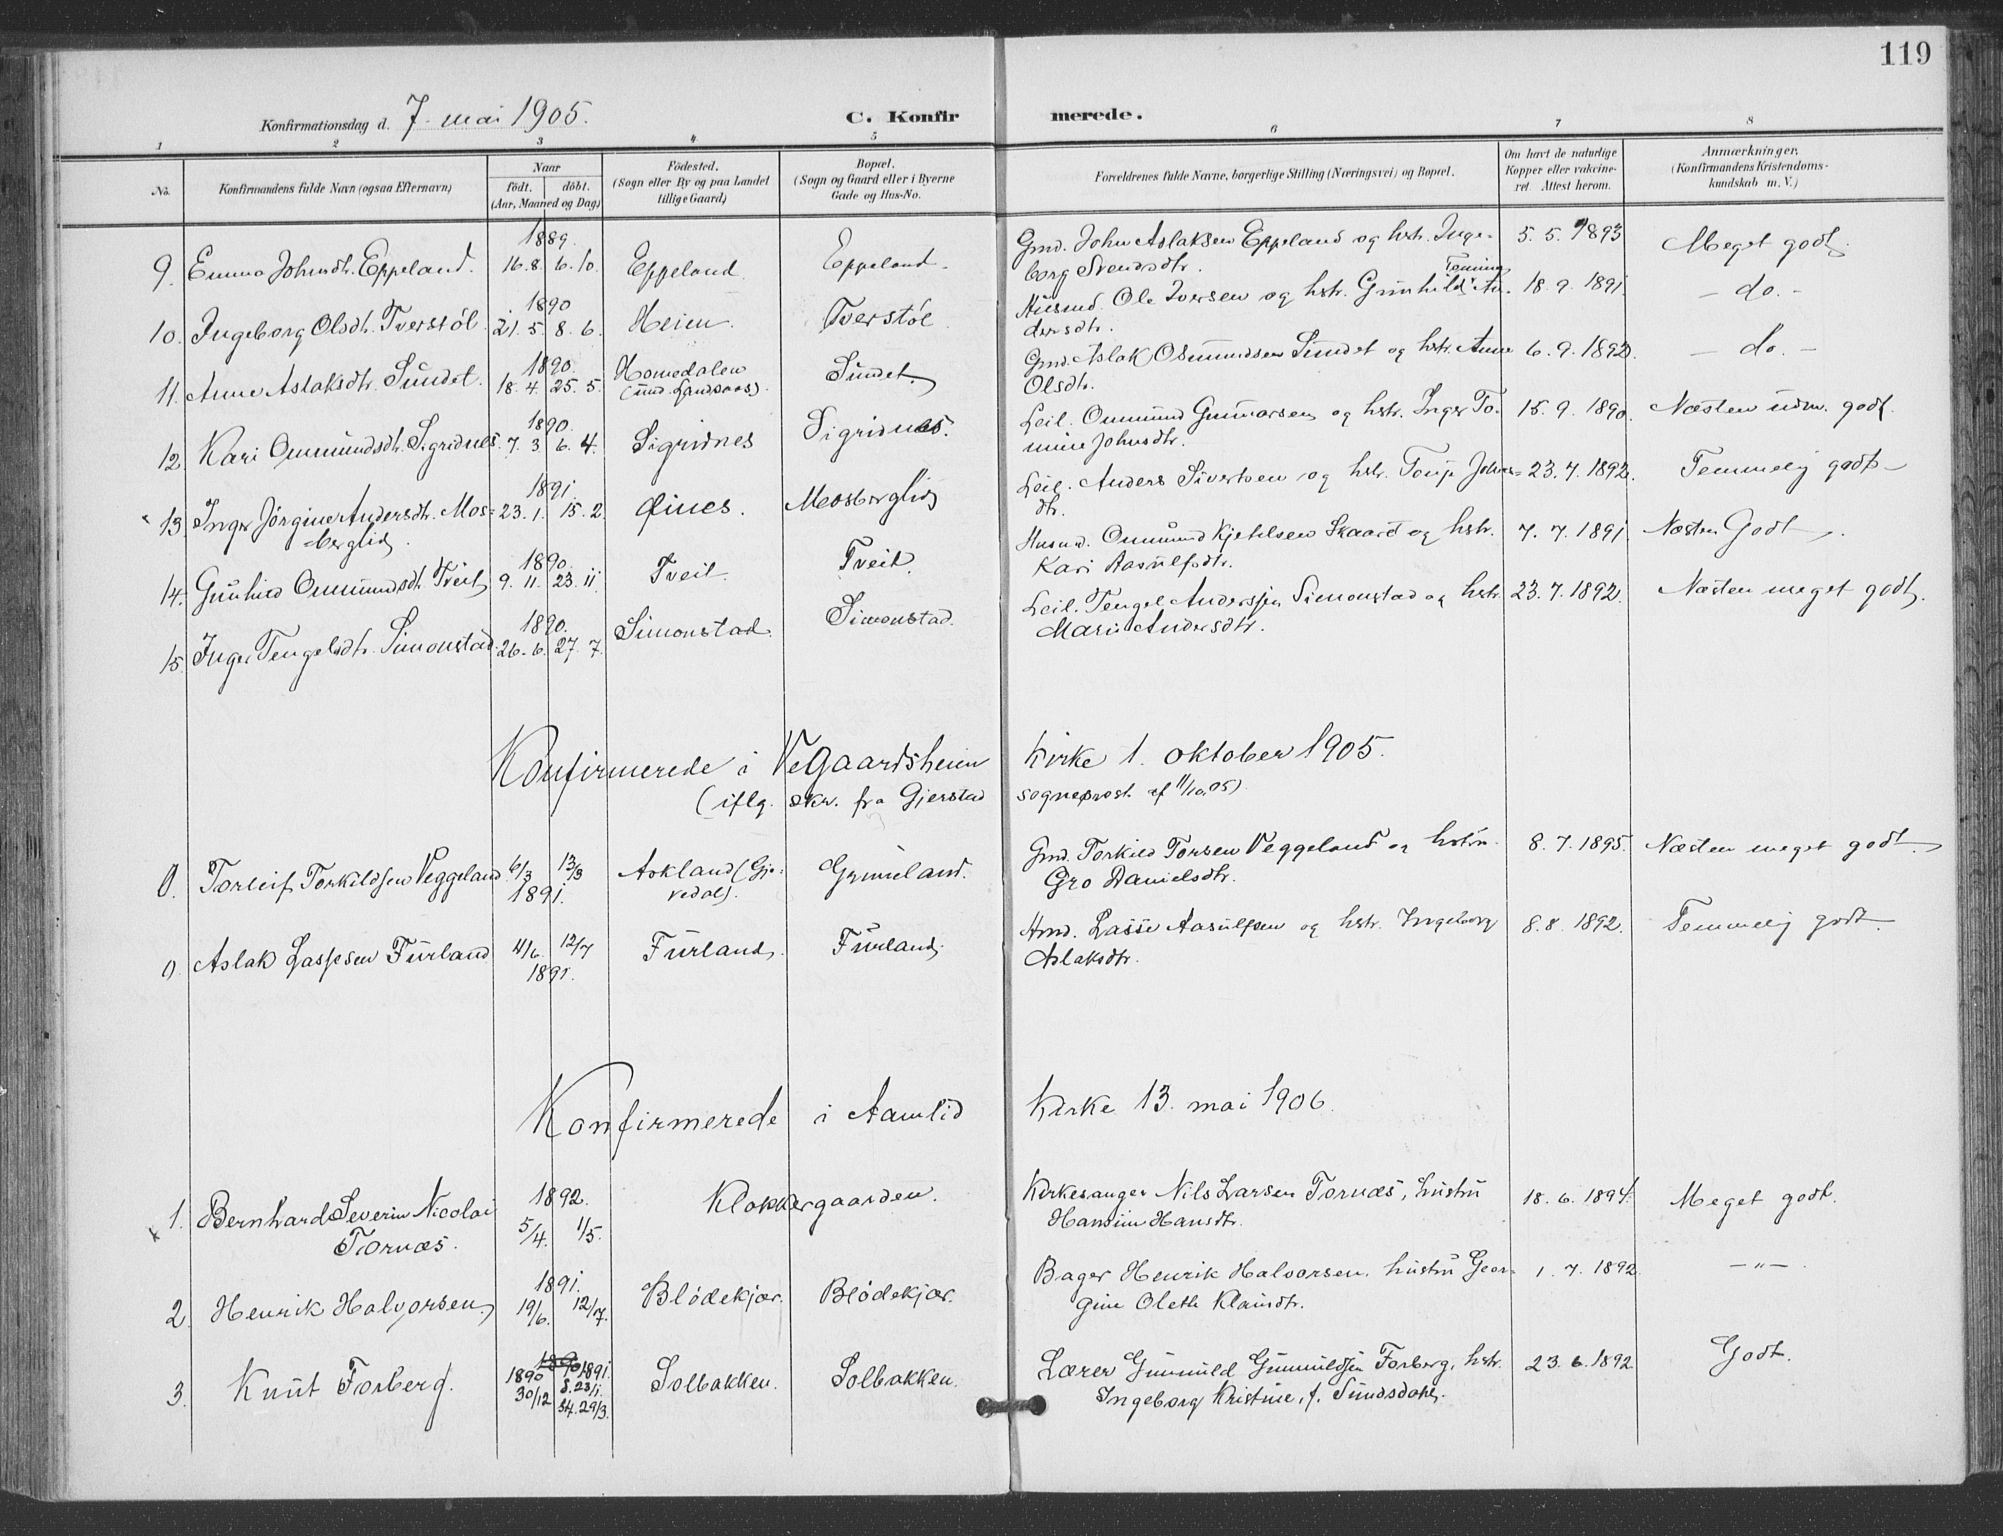 119
Konfirmationsdag d. 7. mai 1905. C. Konfirmerede.
1 2 3 4 5 6 7 8
No. Konfirmandens fulde Navn (ogsaa Efternavn) Naar født. døbt. (Aar, Maaned og Dag) Fødested. (Sogn eller By og paa Landet tillige Gaard) Bopæl. (Sogn og Gaard eller i Byerne Gade og Hus-No. Forældrenes fulde Navne, borgerlige Stilling (Næringsvei) og Bopæl. Om havt de naturlige Kopper eller vakcineret. Attest herom. Anmærkninger. (Konfirmandens Kristendomskundskab m. V.)
1889.
9. Emma Johnsdtr. Eppeland. 16.8. 6.10. Eppeland Eppeland. Gmd. John Aslaksen Eppeland og hstr. Inge- 5.5. 1893 Meget godt.
borg Svendsdtr.
1890
10. Ingeborg Olsdtr. Tverstøl 21.5. 8.6. Heien. Tverstøl Husmd. Ole Iversen og hstr. Gunhild An- 18.9. 1891. - do. -
dersdtr.
1890.
11. Anne Aslaksdtr. Sundet. 18.4. 25.5. Homedalen (und. Landsaas). Sundet. Gmd. Aslak Osmundsen Sundet og hstr. Anne 6.9. 1892. - do. -
Olsdtr.
1890.
12. Kari Ommundsdtr. Sigridnes. 7.3. 6.4. Sigridnes Sigridnes. Leil. Ommund Gunnarsen og hstr. Inger To- 15.9. 1890. Næsten udm. godt.
mine Johnsdtr.
1891.
13. Inger Jørgine Andersdtr. Mos- 23.1. 15.2. Øines. Mosberglid Leil. Anders Sivertsen og hstr. Johns- 23.7. 1892. Temmelig godt
berglid. dtr.
1890.
14. Gunhild Ommundsdt. Tveit 9.11. 23.11. Tveit. Tveit. Husmd. Ommund Kjetilsen Skaard og hstr. 7.7. 1891 Næsten Godt.
Kari Aasulfsdtr.
1890.
15. Inger Tengelsdtr. Simonstad. 26.6. 27.7. Simonstad. Simonstad. Leil. Tengel Anderssen Simonstad og hstr. 23.7. 1892. Næsten meget godt.
Marie Andersdtr.
Konfirmerede i Vegaardsheien Kirke 1. oktober 1905.
(iflg. skr. fra Gjerstad sogneprest af 11/10.05)
0. Torleif Torkildsen Veggeland 6/3 13/3 Askland (Gjøvedal). Grimeland. Gmd. Torkild Torsen Veggeland og hstru 8.7. 1895. Næsten meget godt.
1891. Gro Danielsdtr.
0. Aslak Lassesen Furland 4/6. 12/7 Furland. Furland. Hmd. Lasse Aasulfsen og hstr. Ingeborg 8.8. 1892. Temmelig godt.
1891. Aslaksdtr.
Konfirmerede i Aamlid Kirke 13. mai 1906.
1892.
1. Bernhard Severin Nicolai 5/4. 1/5. Klokkergaarden. Kirkesanger Nils Larsen Tornæs, hustru 18.6. 1894. Meget godt.
Tornæs. Hansine Hansdtr.
1891.
2. Henrik Halvorsen. 19/6. 12/7. Blødekjær. Blødekjær. Bager Henrik Halvorsen, hustru Geor- 1.7. 1892 -"-
gine Oleth Klausdtr.
1890 1891.
3. Knut Forberg. 30/12 23/1. Solbakken. Solbakken. Lærer Gunnuld Gunnuldsen Forberg, hstr. 23.6. 1892 Godt.
29/3. Ingeborg Kristine, f. Sundsdahl.